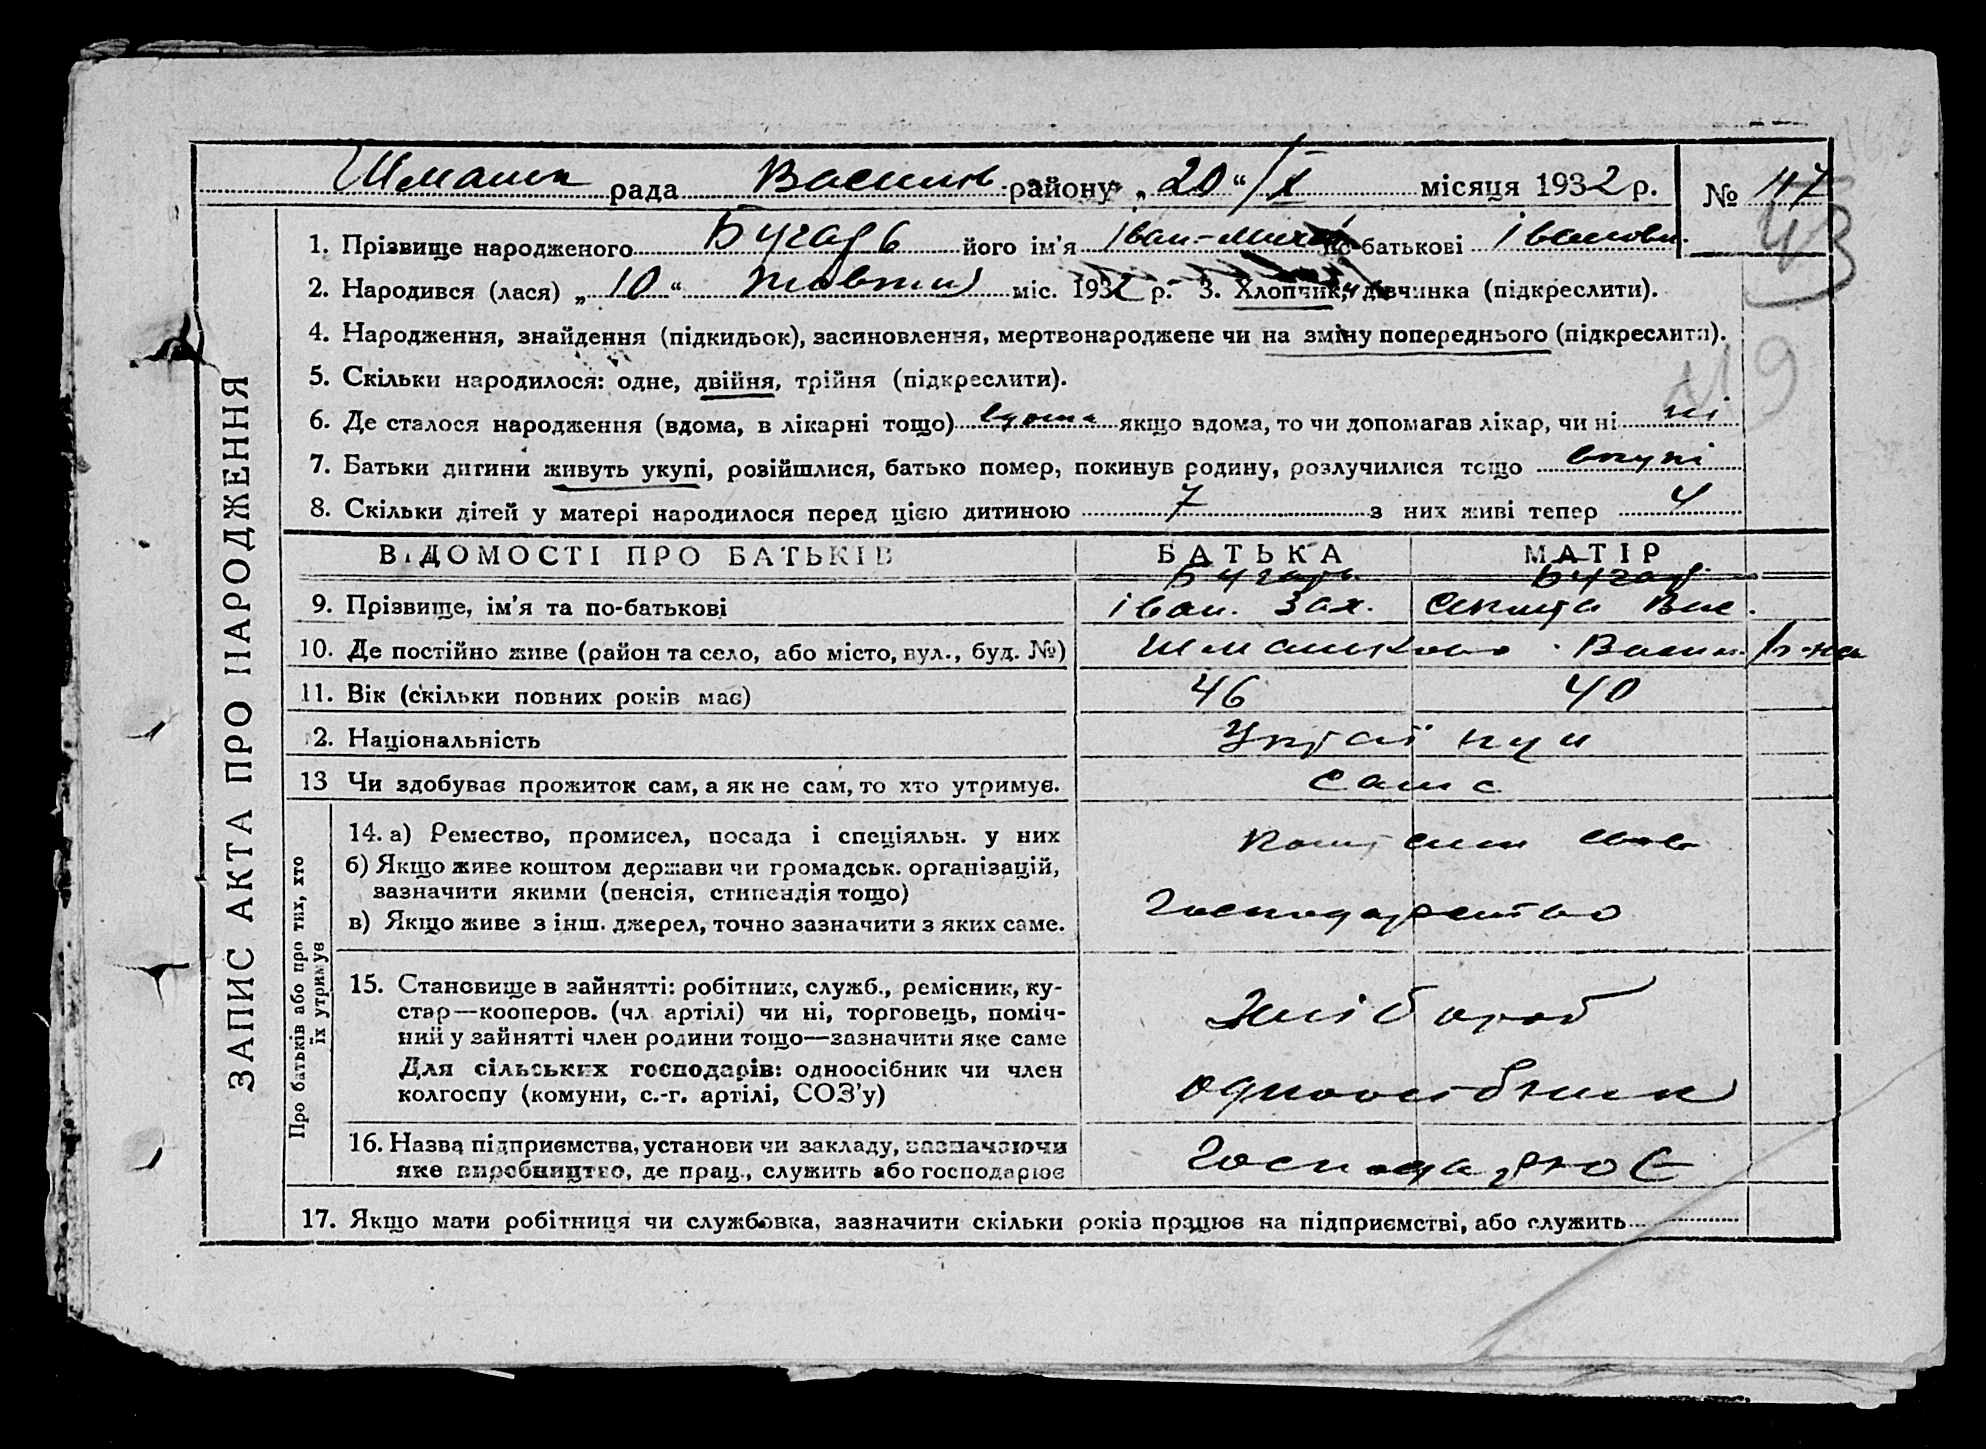 Шмашк рада Васильв району „ 20 “ / X місяця 1932 р. № 47
43
1. Прізвище народженого Бугарь його ім'я Іван-Миха по батькові Іванови.
2. Народився (лася) „ 10 “ жовтня міс. 1932 р. 3. Хлопчик, дівчинка (підкреслити).
4. Народження, знайдення (підкидьок), засиновлення, мертвонароджене чи на зміну попереднього (підкреслити).
119
5. Скільки народилося: одне, двійня, трійня (підкреслити).
6. Де сталося народження (вдома, в лікарні тощо) вдома якщо вдома, то чи допомагав лікар, чи ні ні
7. Батьки дитини живуть укупі, розійшлися, батько помер, покинув родину, розлучилися тощо вкупі
8. Скільки дітей у матері народилося перед цією дитиною 7 з них живі тепер 4
ВІДОМОСТІ ПРО БАТЬКІВ БАТЬКА МАТІР
Бугарь Бугарь
9. Прізвище, ім'я та по-батькові Іван. Зах. Вас.
10. Де постійно живе (район та село, або місто, вул., буд. №) Шмашково Васил. р-на
11. Вік (скільки повних років має) 46 40
12. Національність Українци
13 Чи здобуває прожиток сам, а як не сам, то хто утримує. сам с
14. а) Ремество, промисел, посада і спеціяльн. у них
б) Якщо живе коштом держави чи громадськ. організацій,
зазначити якими (пенсія, стипендія тощо)
в) Якщо живе з інш. джерел, точно зазначити з яких саме. господарство
15. Становище в зайнятті: робітник, служб., ремісник, ку-
стар—кооперов. (чл. артілі) чи ні, торговець, поміч- Хлібороб
ний у зайнятті член родини тощо—зазначити яке саме
Для сільських господарів: одноосібник чи член
колгоспу (комуни, с.-г. артілі, СОЗ'у) одноосібник
16. Назва підприємства, установи чи закладу, зазначаючи
яке виробництво, де прац., служить або господарює господарює
17. Якщо мати робітниця чи службовка, зазначити скільки років працює на підприємстві, або служить
ЗАПИС АКТА ПРО НАРОДЖЕННЯ
Про батьків або про тих, хто
їх утримує